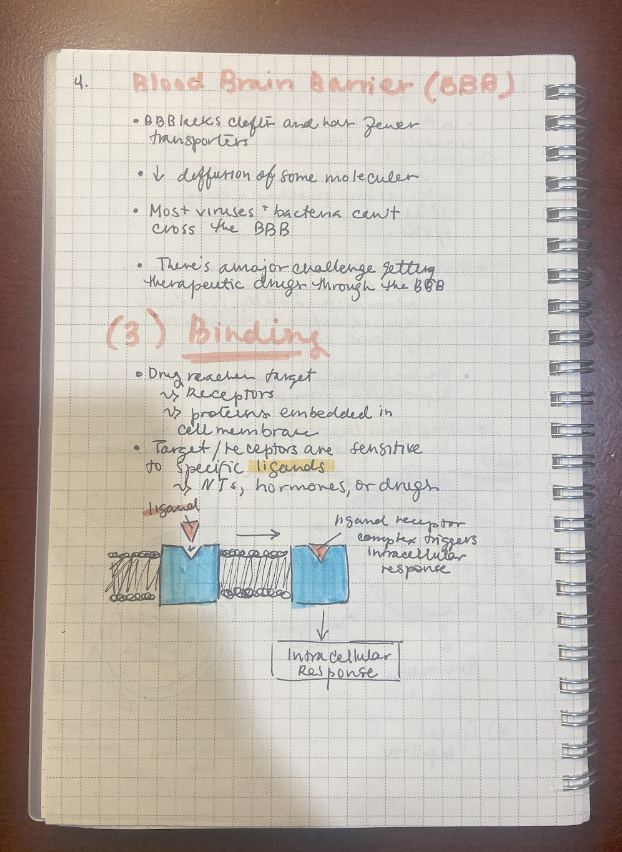 4. Blood Brain Barrier (BBB)
• BBB lacks clefts and has fewer
transporters
• ↓ diffusion of some molecules
• Most viruses + bacteria can't
cross the BBB
• There's a major challenge getting
therapeutic drugs through the BBB
(3) Binding
• Drug reaches target
↳ Receptors
↳ proteins embedded in
cell membrane
• Target/receptors are sensitive
to specific ligands
↳ NTs, hormones, or drugs
ligand
ligand receptor
complex triggers
intracellular
response
Intracellular
Response